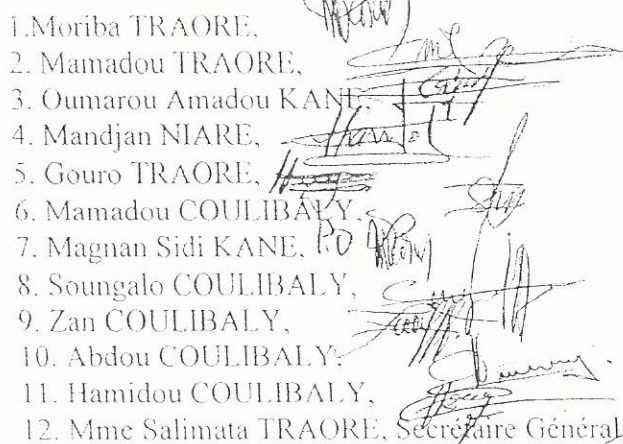 1.Moriba TRAORE,
2. Mamadou TRAORE,
3. Oumarou Amadou KANE,
4. Mandjan NIARE,
5. Gouro TRAORE,
6. Mamadou COULIBALY,
7. Magnan Sidi KANE, PO
8. Soungalo COULIBALY,
9. Zan COULIBALY,
10. Abdou COULIBALY,
11. Hamidou COULIBALY,
12. Mme Salimata TRAORE, Secrétaire Général